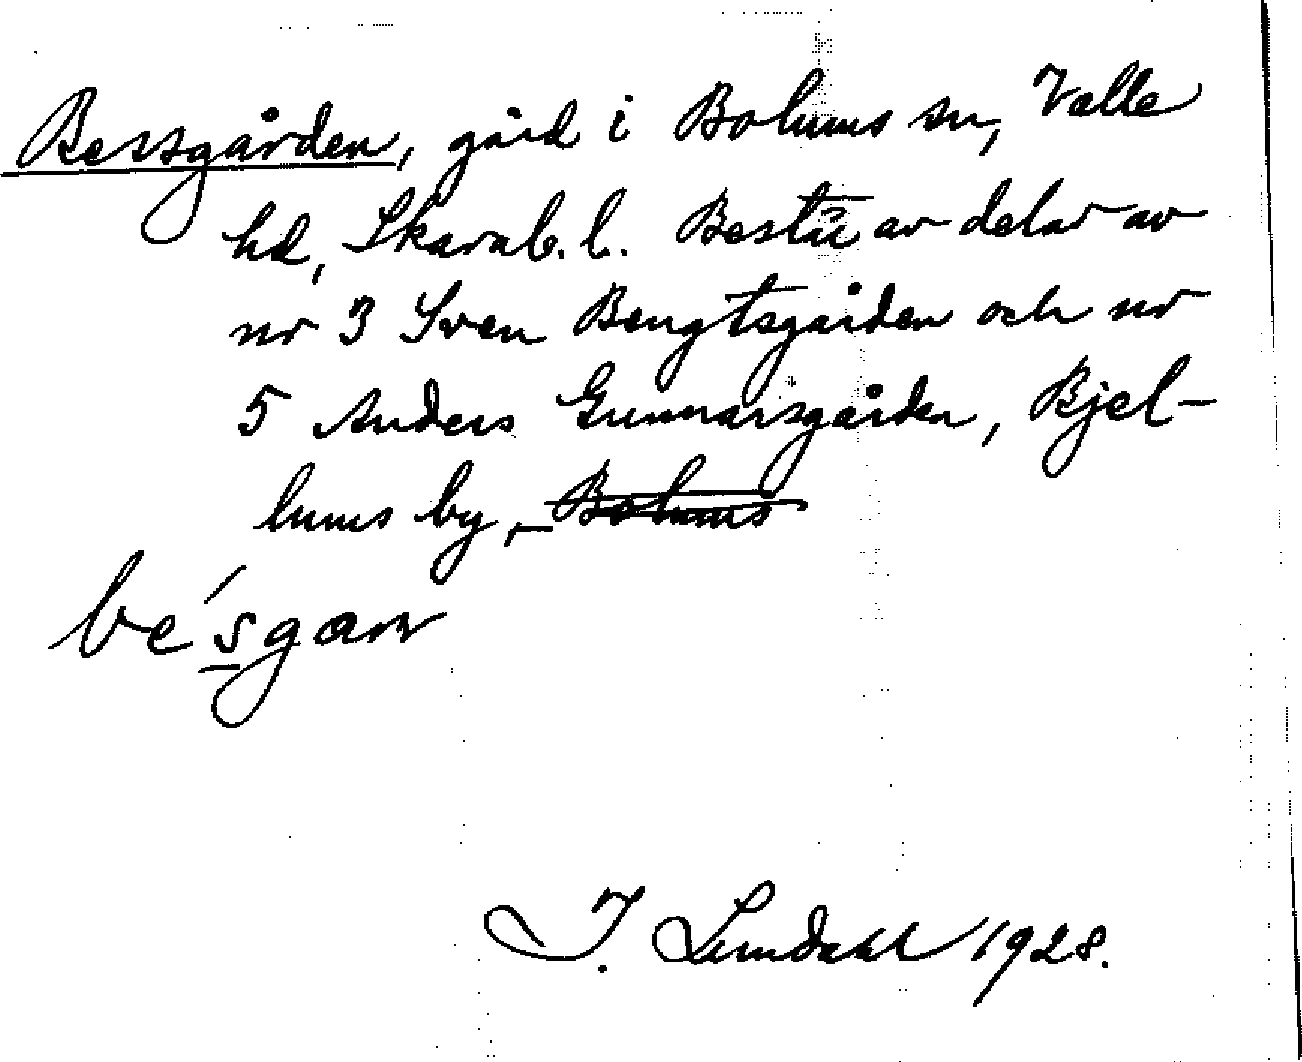 Bessgården, gård i Bolums sn, Valle
hd, Skarab. l. Bestå av delar av
nr 3 Sven Bengtsgården och nr
5 Anders Gunnarsgården, Bjel-
lums by, Bolums
be´sgarn
J. Lundahl 1928.